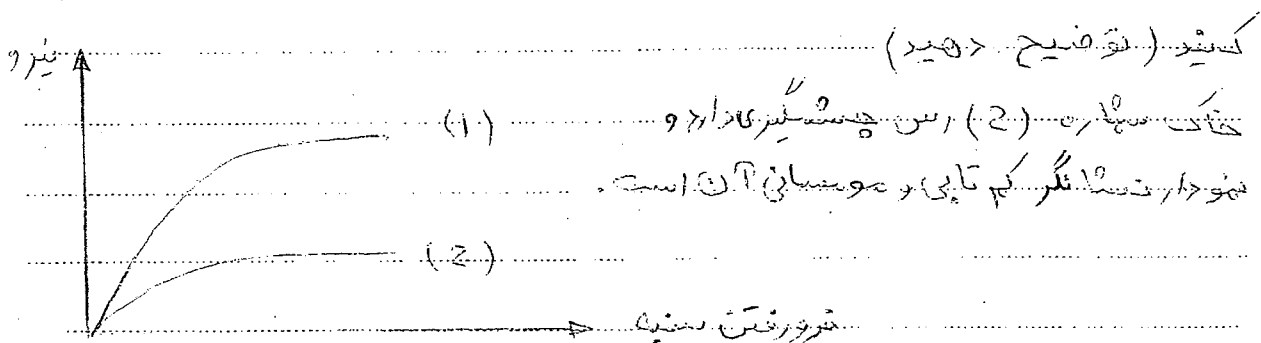 کنید (توضیح دهید)
نیرو
خاک شماره (2) رس چشمگیری دارد و
(1)
نمودار نشانگر کم تابی و موسانی آن است.
(2)
فرورفتن سنبه